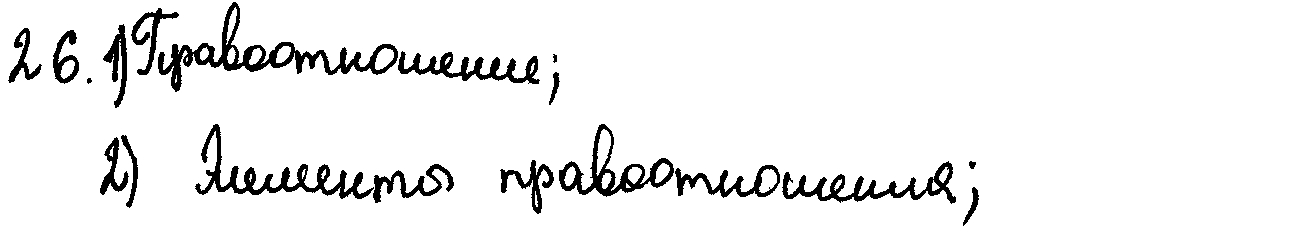 26. 1) Правоотношение;
2) Элементы правоотношения;